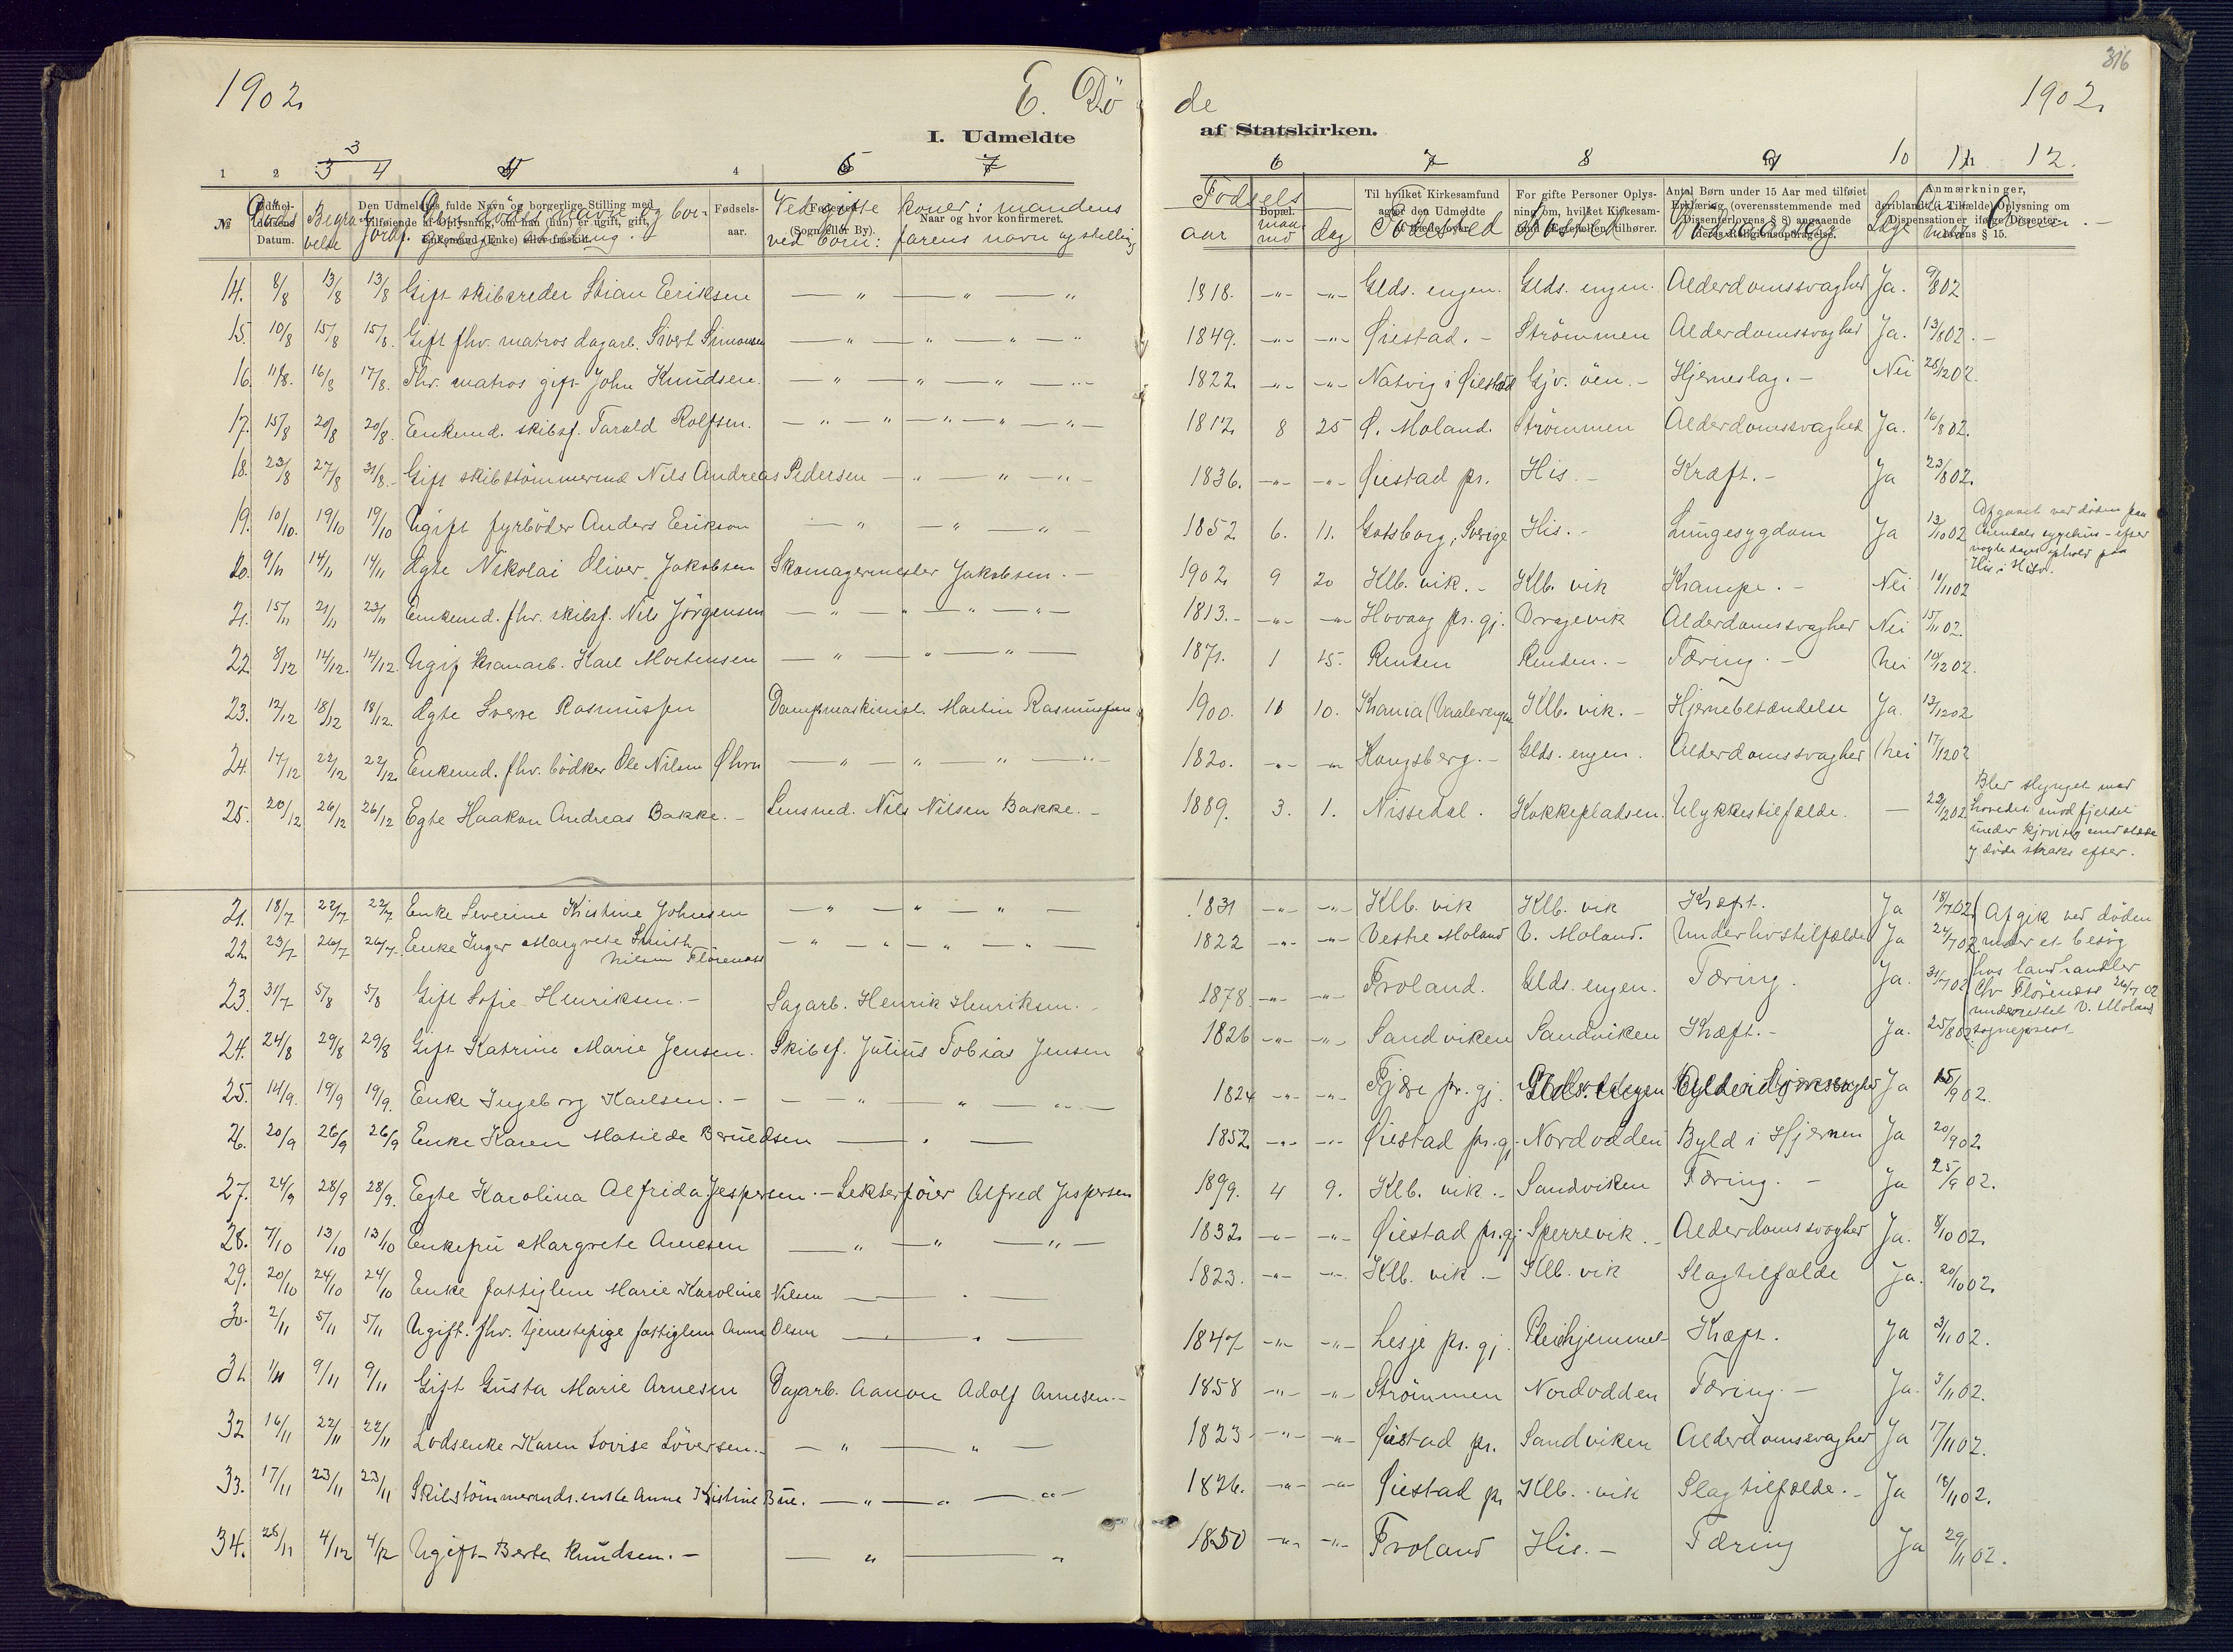 316
1902. E. Döde 1902.
I. Udmeldte af Statskirken.
1 2 3 3 4 4 6 7 6 7 8 9 10 11 12.
№ Döds Datum. Begravelse Jordf. Den Udmeldtes fulde Navn og borgerlige Stilling med tilføiende af Oplysning, om han (hun) er ugift, gift, Enkemand (Enke) eller fraskilt. Fødsels-aar. Fødested (Sogn eller By). Naar og hvor konfirmeret.
Ved gifte koner: mandens
ved børn: farens navn og stilling
Fødsels aar maaned dag Bopæl. Til hvilket Kirkesamfund agter den Udmeldte at træde over. Fødested For gifte Personer Oplysning om, hvilket Kirkesamfund Ægtefællen tilhører. Bosted Antal Børn under 15 Aar med tilføiet Erklæring (overensstemmende med Dissenterlovens § 8) angaaende deres Religionsopdragelse. Dödsaarsag Læge Anmærkninger, deriblandt (i Tilfælde) Oplysning om Dispensationer ifølge Dissenterlovens § 15.
14. 8/8 13/8 13/8 Gift skibsreder Stian Eriksen — " — " — " 1818. -"- -"- Glds. engen. Glds. engen. Alderdomssvaghed Ja. 9/8 02
15. 10/8 15/8 15/8. Gift fhv. matros dagarb. Sivert Simonsen — " — " — " — " 1849. -"- -"- Øiestad. - Strömmen Alderdomssvaghed Ja. 13/8 02. -
16. 11/8. 16/8 17/8. Fhv. matros gift John Knudsen. — " — " — " — 1822. -"- -"- Natvig i Øiestad Gjv. öen. - Hjerneslag. - Nei 28/12 02.
17. 15/8 20/8 20/8. Enkemd. skibsf. Tarald Rolfsen. — " — " — " — 1812. 8 25 Ø. Moland. Strömmen Alderdomssvaghed Ja. 16/8 02.
18. 23/8 27/8 31/8. - Gift skibstömmermd Nils Andreas Pedersen — " — " — " — 1836. -"- -"- Øiestad pr. His. - Kræft. - Ja 23/8 02.
19. 10/10. 19/10 19/10 Ugift fyrböder Anders Erikson — " — " — " — 1852 6. 11. Gotsborg, Sverige His. - Lungesygdom Ja 13/10 02 Afgaaet ved döden paa Arendals sygehus - efter nogle dages ophold paa His i Hisø.
20. 9/11 14/11 14/11 Ægte Nikolai Oliver Jakobsen Skomagermester Jakobsen. - 1902. 9 20 Klb. vik. - Klb. vik Krampe. - Nei 10/11 02
21. 15/11 21/11 23/11 Enkemd. fhv. skibsf. Nils Jörgensen — " — " — " — 1813. - -"- -"- Hovaag pr. gj. Vragevik Alderdomssvaghed Nei 15/11 02.
22. 8/12 14/12. 14/12. Ugif kranarb. Karl Mortensen — " — " — " — 1871. 1 15. Renden Renden. - Tæring. - Nei 10/12 02.
23. 12/12 18/12 18/12. Ægte Sverre Rasmussen Dampmaskinist. Martin Rasmussen 1900. 11 10. Krania (Vaalerengen Klb. vik. - Hjernebetændelse Ja. 13/12 02
24. 17/12 22/12 22/12 Enkemd. fhv. bödker Ole Nilsen Øhrn — " — " — " — 1820. -"- -"- Kongsberg. - Glds. engen. Alderdomssvaghed Nei 17/12 02
25. 20/12 26/12 26/12 Egte Haakon Andreas Bakke. - Lensmd. Nils Nilsen Bakke. - 1889. 3. 1. Nissedal. Kokkepladsen. Ulykkestilfælde. — 22/12 02 Blev slynget med hovedet mod fjeldet under kjöring med slæde og døde straks efter.
21. 18/7 22/7 22/7 Enke Severine Kristine Johnsen — " — " — " — 1831 -"- -"- Klb. vik Klb. vik Kræft. Ja 18/7 02.
22. 23/7 26/7 26/7. Enke Inger Margrete Smith Nilsen Flörenæss — " — " — " — 1822 -"- -"- Vestre Moland V. Moland. Underlivstilfælde Ja 24/7 02 Afgik ved döden under et besög hos landhandler Chr Flörenæss 26/7 02 underrettet V. Moland sogneprest
23. 31/7 5/8 5/8 Gift Sofie Henriksen. - Sagarb. Henrik Henriksen. 1878 -"- -"- Froland. Glds. engen. Tæring. Ja. 31/7 02
24. 24/8 29/8 29/8 Gift Katrine Marie Jensen. Skibsf. Julius Tobias Jensen 1826 -"- -"- Sandviken Sandviken Kræft. - Ja. 25/8 02.
25. 14/9. 19/9 19/9. Enke Ingeborg Karlsen. - — " — " — 1824 -"- -"- Fjære pr. gj. Glds. engen Alderdomssvaghed Ja 15/9 02.
26. 20/9 26/9 26/9 Enke Karen Matilde Berntdsen — " — 1852. -"- -"- Øiestad pr. gj. Nordodden Byld i Hjernen Ja 20/9 02.
27. 24/9 28/9 28/9. Egte Karolina Alfrida Jespersen. - Lekterföier Alfred Jespersen 1899. 4 9. Klb. vik. - Sandviken Tæring. - Ja 25/9 02.
28. 7/10 13/10 13/10 Enkefru Margrete Arnesen — " — " — " — 1832. -"- -"- Øiestad pr. gj. Sperrevik. - Alderdomssvaghed Ja. 8/10 02.
29. 20/10 24/10 24/10 Enke fattiglem Marie Karoline Nilsen — " — 1823. -"- -"- Klb. vik - Klb. vik Slagtilfælde Ja. 20/10 02.
30. 2/11 5/11 5/11 Ugift. fhv. tjenestepige fattiglem Anna Olsen — " — 1847 -"- -"- Lesje pr. gj. Pleiehjemmet Kræft. Ja 3/11 02.
31. 9/11 9/11 Gift Gusta Marie Arnesen Dagarb. Aanon Adolf Arnesen. - 1858 -"- -"- Strömmen Nordodden Tæring. - Ja. 3/11 02.
32 16/11 22/11 22/11 Lodsenke Karen Lovise Löversen. - — " — " — 1823 -"- -"- Øiestad pr. Sandviken Alderdomssvaghed Ja 17/11 02.
33. 17/11 23/11 23/11 Skibstömmermds. enke Anne Kristine Bue. — " — " — " — 1826. -"- -"- Øiestad pr Klb. vik Slagtilfælde. - Ja 18/11 02.
34. 28/11 4/12 4/12 Ugift Berte Knudsen. - — " — " 1850 -"- -"- Froland His. - Tæring Ja 29/11 02.